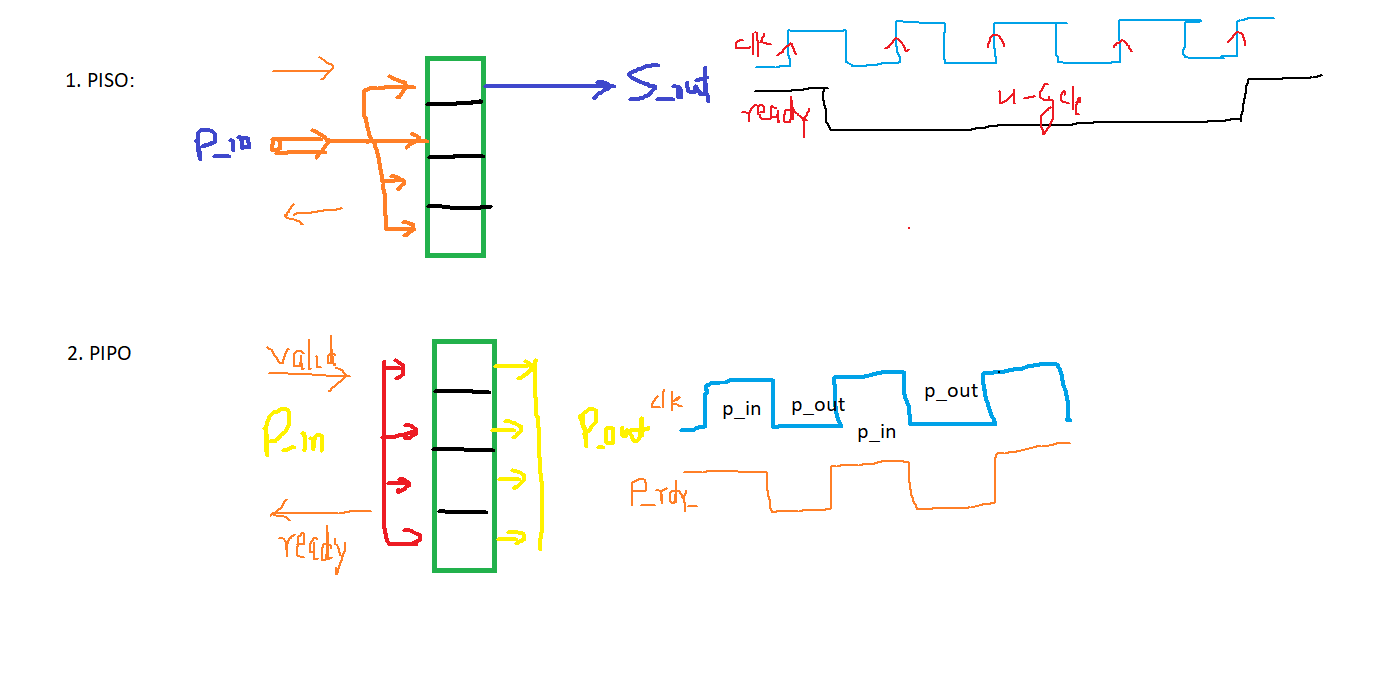 1. PISO:
P_in
S_out
clk
ready
4-Cyck
2. PIPO
valid
P_in
ready
P_out
clk
p_in
p_out
p_in
p_out
P_rdy_